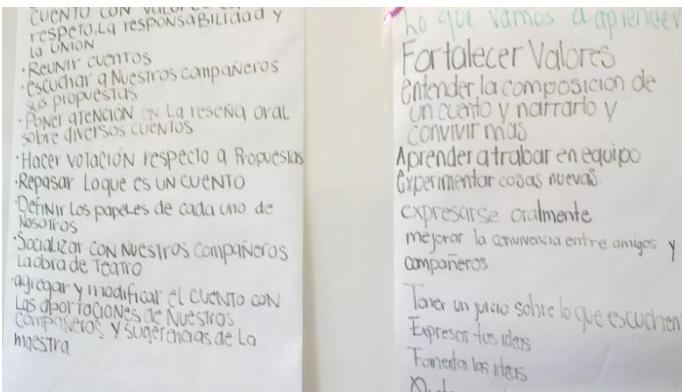 CUENTO CON
respeto, La responsabilidad y
La UNION
•Reunir cuentos
•escuchar a Nuestros compañeros
sus propuestas
•Poner atención en La reseña oral
sobre diversos cuentos
•Hacer votación respecto a Propuestas
•Repasar Lo que es UN CUENTO
•Definir Los papeles de cada uno de
Nosotros
•Socializar con Nuestros compañeros
La obra de Teatro
•agregar y modificar el cuento con
Las aportaciones de Nuestros
compañeros y sugerencias de La
maestra
Lo que vamos a aprender
Fortalecer Valores
entender la composicion de
un cuento y narrarlo y
convivir mas
Aprender a trabar en equipo
Experimentar cosas nuevas.
expresarse oralmente
mejorar la convivencia entre amigos y
compañeros.
Tener un juicio sobre lo que escuchen
Expresar tus ideas
Fomentar las ideas